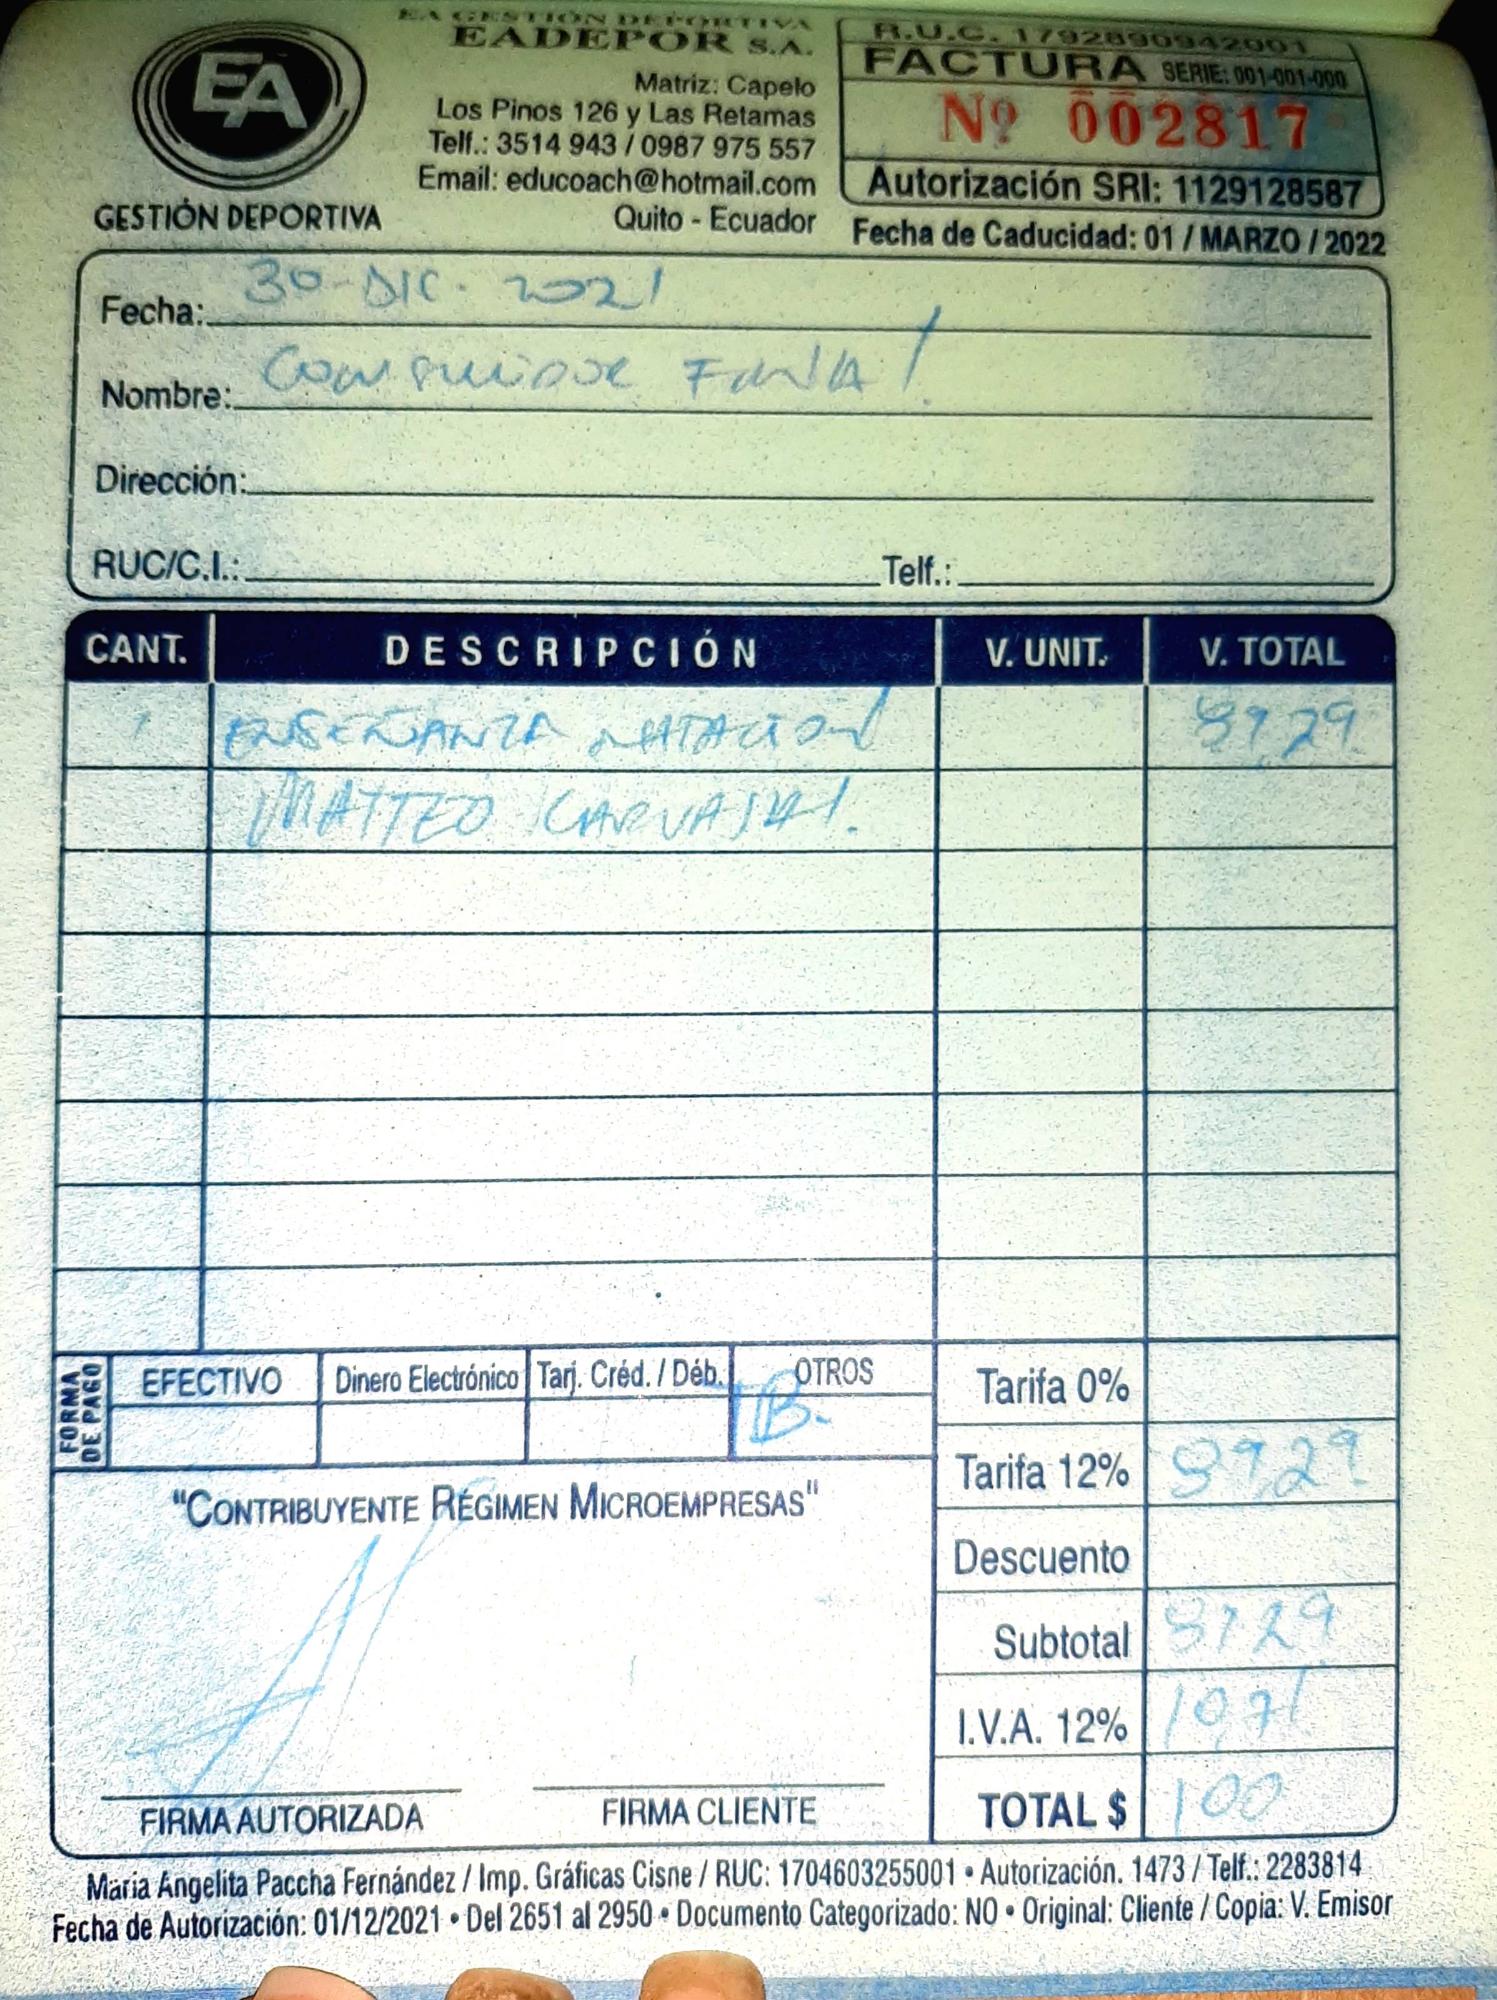 EA GESTIÓN DEPORTIVA
EADEPOR S.A.
Matriz: Capelo
Los Pinos 126 y Las Retamas
Telf.: 3514 943 / 0987 975 557
Email: educoach@hotmail.com
Quito - Ecuador
EA
GESTIÓN DEPORTIVA
R.U.C. 1792890942001
FACTURA SERIE: 001-001-000
Nº 002817
Autorización SRI: 1129128587
Fecha de Caducidad: 01 / MARZO / 2022
Fecha: 30-DIC. 2021
Nombre: CONSUMIDOR FINAL
Dirección:
RUC/C.I.: Telf.:
CANT. DESCRIPCIÓN V. UNIT. V. TOTAL
1 ENSEÑANZA NATACION 89,29
MATTEO CARVAJAL.
FORMA DE PAGO EFECTIVO Dinero Electrónico Tarj. Créd. / Déb. OTROS
TB.
Tarifa 0%
Tarifa 12% 89,29
Descuento
Subtotal 89,29
I.V.A. 12% 10,71
TOTAL $ 100
"CONTRIBUYENTE RÉGIMEN MICROEMPRESAS"
FIRMA AUTORIZADA FIRMA CLIENTE
Maria Angelita Paccha Fernández / Imp. Gráficas Cisne / RUC: 1704603255001 • Autorización. 1473 / Telf.: 2283814
Fecha de Autorización: 01/12/2021 • Del 2651 al 2950 • Documento Categorizado: NO • Original: Cliente / Copia: V. Emisor